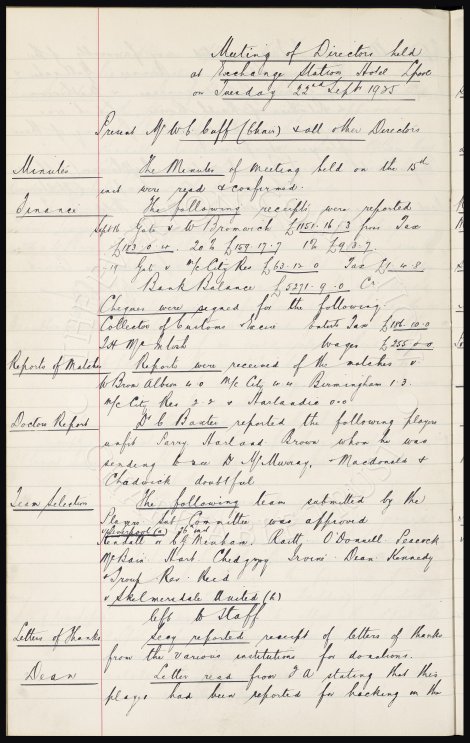 Meeting of Directors held
at Exchange Station Hotel L'pool
on Tuesday 22nd Sept 1925
Present Mr W.C. Cuff (Chair) & all other Directors
Minutes The Minutes of Meeting held on the 15th
inst were read & confirmed.
Finance The following receipts were reported
Sept 16 Gate v W Bromwich £1151-16-3 from Tax
£183-0-4. 20% £159-17-7 1% £9-3-7
" 19 Gate v M/c City Res £63-12-0 Tax £1-4-8
Bank Balance £5271-9-0 Cr
Cheques were signed for the following
Collector of Customs Excise Entert Tax £186-10-0
T.H. McIntosh Wages £255-0-0
Reports of Matches Reports were received of the matches v
W Brom Albion 4.0 M/c City 4.4 Birmingham 1.3
M/c City Res 2-2 v Harlandic 0.0
Doctors Report Dr C Baxter reported the following players
unfit Parry Harland Brown whom he was
sending to see Dr McMurray, & Macdonald &
Chadwick doubtful
Team Selection The following team submitted by the
Players Sub Committee was approved
v Liverpool (a) 26th inst
Kendall or Menham, Raitt, O'Donnell Peacock
McBain Hart Chedgzoy Irvine Dean Kennedy
& Troup Res Reid
v Skelmersdale United (h)
left to Staff
Letters of Thanks Secy reported receipt of letters of thanks
from the various institutions for donations.
Dean Letter read from F.A stating that this
player had been reported for backing in the